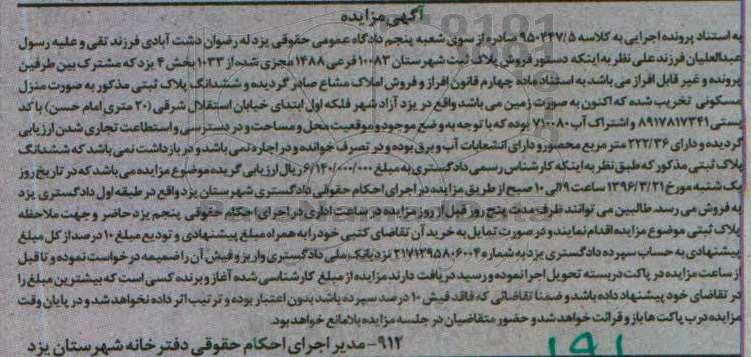 آگهی مزایده
به استناد پرونده اجرایی به کلاسه ۹۵۰۴۴۷/۵ صادره از سوی شعبه پنجم دادگاه عمومی حقوقی یزد له رضوان دشت آبادی فرزند تقی و علیه رسول
عبدالعلیان فرزند علی نظر به اینکه دستور فروش پلاک ثبت شهرستان ۱۰۰۸۳ فرعی ۱۴۸۸ مجزی شده از ۱۰۳۳ بخش ۴ یزد که مشترک بین طرفین
پرونده و غیر قابل افراز می باشد به استناد ماده چهارم قانون افراز و فروش املاک مشاع صادر گردیده و ششدانگ پلاک ثبتی مذکور به صورت منزل
مسکونی تخریب شده که اکنون به صورت زمین می باشد واقع در یزد آزاد شهر فلکه اول ابتدای خیابان استقلال شرقی (۲۰ متری امام حسن) با کد
پستی ۸۹۱۷۸۱۷۳۴۱ و اشتراک آب ۷۱۰۰۸۰ بوده که با توجه به وضع موجود و موقعیت محل و مساحت و در دسترسی و استطاعت تجاری شدن ارزیابی
گردیده و دارای ۲۲۲/۳۶ متر مربع محصور و دارای انشعابات آب و برق بوده و در تصرف خوانده و در اجاره نمی باشد و در بازداشت نمی باشد که ششدانگ
پلاک ثبتی مذکور که طبق نظر به اینکه کارشناس رسمی دادگستری به مبلغ ۶/۱۴۰/۰۰۰/۰۰۰ ریال ارزیابی گریده موضوع مزایده می باشد که در تاریخ روز
یک شنبه مورخ ۱۳۹۶/۳/۲۱ ساعت ۹ الی ۱۰ صبح از طریق مزایده در اجرای احکام حقوقی دادگستری شهرستان یزد واقع در طبقه اول دادگستری یزد
به فروش می رسد. طالبین می توانند ظرف مدت پنج روز قبل از روز مزایده در ساعت اداری در اجرای احکام حقوقی پنجم یزد حاضر و جهت ملاحظه
پلاک ثبتی موضوع مزایده اقدام نمایند و در صورت تمایل به خرید آن تقاضای کتبی خود را به همراه مبلغ پیشنهادی و تودیع مبلغ ۱۰ درصد از کل مبلغ
پیشنهادی به حساب سپرده دادگستری یزد به شماره ۲۱۷۱۲۹۵۸۰۶۰۰۴ نزد بانک ملی دادگستری واریز و فیش آن را ضمیمه درخواست نموده و تا قبل
از ساعت مزایده در پاکت دربسته تحویل اجرا نموده و رسید دریافت دارند مزایده از مبلغ کارشناسی شده آغاز و برنده کسی است که بیشترین مبلغ را
در تقاضای خود پیشنهاد داده باشد و ضمنا تقاضائی که فاقد فیش ۱۰ درصد سپرده باشد بدون اعتبار بوده و ترتیب اثر داده نخواهد شد و در پایان وقت
مزایده درب پاکت ها باز و قرائت خواهد شد و حضور متقاضیان در جلسه مزایده بلامانع خواهد بود.
۹۱۲- مدیر اجرای احکام حقوقی دفترخانه شهرستان یزد
۱۹۱